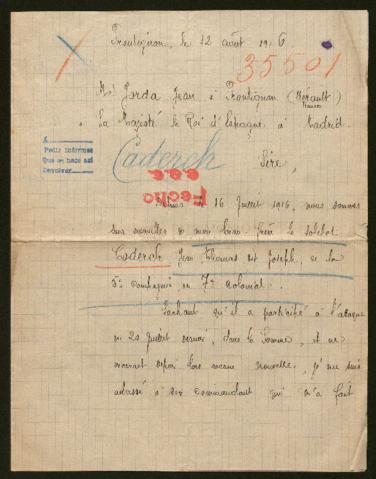 Frontignan, le 12 août 1916
35501
Mr Jorda Jean à Frontignan (Hérault)
France
à Sa Majesté le Roi d'Espagne à Madrid.
A
Pedir informes
Que se hace así
Caderch
Sire,
Fecho
le 16 Juillet 1916, nous sommes
sans nouvelles de mon beau-frère le soldat
Caderch Jean Thomas dit Joseph, de la
5e compagnie, du 7e colonial.
Sachant qu'il a participé à l'attaque
du 20 Juillet dernier, dans la Somme, et ne
recevant depuis lors aucune nouvelle, je me suis
adressé à son commandant qui m'a fait